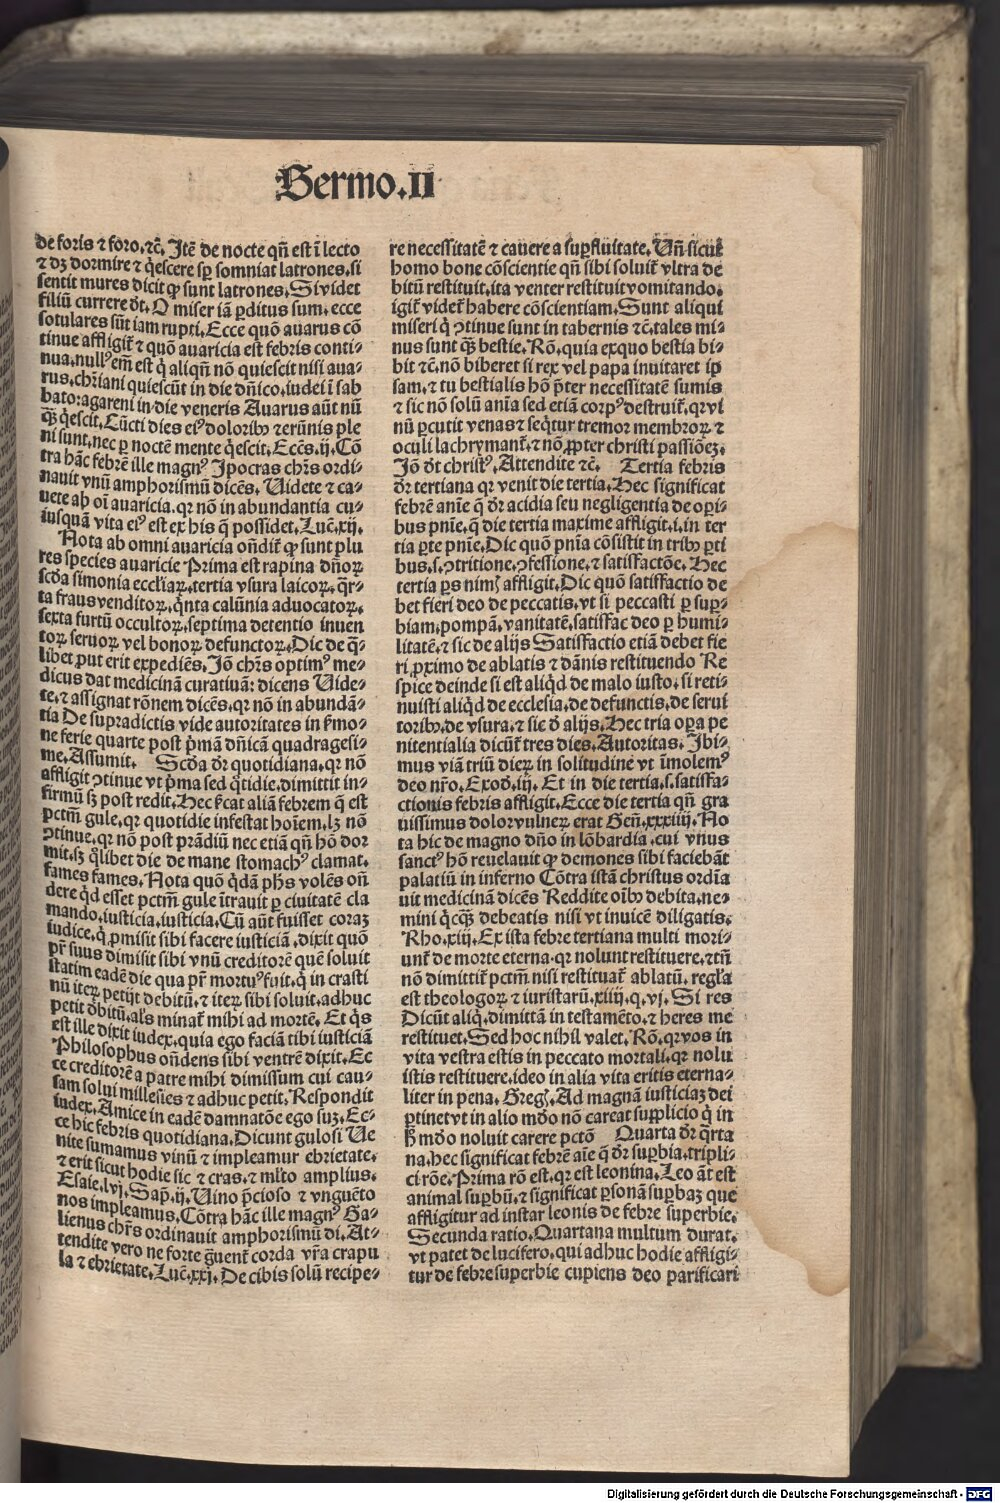 Sermo.II
de foris ⁊ foro.⁊c̃. Itẽ de nocte qñ est ĩ lecto
⁊ dꝫ dormire ⁊ q̇escere sꝑ somniat latrones.si
sentit mures dicit ꝙ sunt latrones. Si videt
filiũ currere dt̃. O miser iã ꝑditus sum. ecce
sotulares sũt iam rupti. Ecce quõ avarus cõ
tinue affligit̃ ⁊ quõ avaricia est febris conti⸗
nua. nullꝰ em̃ est q̇ aliqñ nõ quiescit nisi aua⸗
rus. chr̃iani quiescũt in die dñico. iudei ĩ sab
bato: agareni in die veneris Avarus aũt nũ
q̃ꝫ q̇escit. Cũcti dies eiꝰ doloribꝰ ⁊ erũnis ple
ni sunt. nec ꝑ noctẽ mente q̇escit. Ecc̃s. ij. Cõ
tra hãc febrẽ ille magnꝰ Ipocras chr̃s ordi⸗
nauit vnũ amphorismũ dicẽs. Uidete ⁊ ca⸗
uete ab oĩ auaricia. qꝛ nõ in abundantia cu⸗
iusquã vita eiꝰ est ex his q̃ possidet. Luc̃. xij.
Nota ab omni auaricia oñdit̃ ꝙ sunt plu
res species avaricie Prima est rapina dñoꝝ
scd̃a simonia eccl̃iaꝝ. tertia vsura laicoꝝ. q̃r⸗
ta fraus venditoꝝ. q̇nta calũnia aduocatoꝝ.
sexta furtũ occultoꝝ. septima detentio inuen
toꝝ seruoꝝ vel bonoꝝ defunctoꝝ. Dic de q̃⸗
libet ꝓut erit expediẽs. Iõ chr̃s optimꝰ me⸗
dicus dat medicinã curatiuã: dicens Uide⸗
te. ⁊ assignat rõnem dicẽs. qꝛ nõ in abundã⸗
tia De supradictis vide autoritates in ẜmo⸗
ne ferie quarte post pͥmã dñicã quadragesi⸗
me. Assumit. Scd̃a dr̃ quotidiana. qꝛ nõ
affligit ꝯtinue vt pͥma sed q̇tidie. dimittit in⸗
firmũ sꝫ post redit. Hec ẜcat aliã febrem q̃ est
pctm̃ gule. qꝛ quotidie infestat hoĩem. lꝫ nõ
ꝯtinue. qꝛ nõ post prãdiũ nec etiã qñ hõ dor
mit. sꝫ q̃libet die de mane stomachꝰ clamat.
fames fames. Nota quõ q̇dã ph̃s volẽs oñ
dere q̇d esset pctm̃ gule ĩtrauit ꝑ ciuitatẽ cla
mando. iusticia. iusticia. Cũ aũt fuisset coraꝫ
iudice. q̇ ꝓmisit sibi facere iusticiã. dixit quõ
pr̃ suus dimisit sibi vnũ creditorẽ quẽ soluit
statim eadẽ die qua pr̃ mortuꝰ fuit. q̇ in crasti
nũ iteꝝ petijt debitũ. ⁊ iteꝝ sibi soluit. adhuc
petit d̃bitũ. al̃s minat̃ mihi ad mortẽ. Et q̇s
est ille dixit iudex. quia ego faciã tibi iusticiã
Philosophus oñdens sibi ventrẽ dixit. Ec
ce creditorẽ a patre mihi dimissum cui cau⸗
sam solui millesies ⁊ adhuc petit. Respondit
iudex. Amice in eadẽ damnatõe ego suꝫ. Ec⸗
ce hic febris quotidiana. Dicunt gulosi Ue
nite sumamus vinũ ⁊ impleamur ebrietate.
⁊ erit sicut hodie sic ⁊ cras. ⁊ ml̃to amplius.
Esaie. lvj. Sap̃. ij. Uino p̃cioso ⁊ vnguẽto
nos impleamus. Cõtra hãc ille magnꝰ Ga⸗
lienus chr̃s ordinauit amphorismũ di. At⸗
tendite vero ne forte g̃uent̃ corda vr̃a crapu
la ⁊ ebrietate. Luc̃. xxj. De cibis solũ recipe⸗
re necessitatẽ ⁊ cauere a suꝑfluitate. Uñ sicut
homo bone cõscientie qñ sibi soluit̃ vltra de
bitũ restituit. ita venter restituit vomitando.
igit̃ videt̃ habere cõscientiam. Sunt aliqui
miseri q̇ ꝯtinue sunt in tabernis ⁊c̃. tales mi⸗
nus sunt q̃ꝫ bestie. Rõ. quia exquo bestia bi⸗
bit ⁊c̃. nõ biberet si rex vel papa inuitaret ip
sam. ⁊ tu bestialis hõ p̃ter necessitatẽ sumis
⁊ sic nõ solũ anĩa sed etiã corpꝰ destruit̃. qꝛ vi
nũ ꝑcutit venas ⁊ seq̇tur tremor membroꝝ ⁊
oculi lachrymant̃. ⁊ nõ ꝓpter christi passiõeꝫ.
Iõ dt̃ christꝰ. Attendite ⁊c̃. Tertia febris
dr̃ tertiana qꝛ venit die tertia. Hec significat
febrẽ anĩe q̃ dr̃ acidia seu negligentia de oꝑi⸗
bus pnĩe. q̃ die tertia maxime affligit. i. in ter
tia ꝑte pnĩe. Dic quõ pnĩa cõsistit in tribꝰ ꝑti
bus. s. ꝯtritione. ꝯfessione. ⁊ satisfactõe. Hec
tertia ꝑs nimꝭ affligit. Dic quõ satisfactio de
bet fieri deo de peccatis. vt si peccasti ꝑ suꝑ⸗
biam. pompã. vanitatẽ. satisfac deo ꝑ humi⸗
litatẽ. ⁊ sic de alijs Satisfactio etiã debet fie
ri ꝓximo de ablatis ⁊ dãnis restituendo Re
spice deinde si est aliq̇d de malo iusto. si reti⸗
nuisti aliq̇d de ecclesia. de defunctis. de serui
toribꝰ. de vsura. ⁊ sic d̃ alijs. Hec tria oꝑa pe
nitentialia dicũt̃ tres dies. Autoritas. Ibi⸗
mus viã triũ dieꝝ in solitudine vt ĩmolemꝰ
deo nr̃o. Exod̃. iij. Et in die tertia. s. satisfa⸗
ctionis febris affligit. Ecce die tertia qñ gra
uissimus dolor vulneꝝ erat Geñ. xxxiiij. No
ta hic de magno dño in lõbardia. cui vnus
sanctꝰ hõ reuelauit ꝙ demones sibi faciebãt
palatiũ in inferno Cõtra istã christus ordĩa
uit medicinã dicẽs Reddite oĩbꝰ debita. ne⸗
mini q̇cq̃ꝫ debeatis nisi vt inuicẽ diligatis.
Rho. xiij. Ex ista febre tertiana multi mori⸗
unt̃ de morte eterna. qꝛ nolunt restituere. ⁊tñ
nõ dimittit̃ pctm̃ nisi restituat̃ ablatũ. regl̃a
est theologoꝝ ⁊ iuristarũ. xiiij. q. vj. Si res
Dicũt aliq̇. dimittã in testamẽto. ⁊ heres me
restituet. Sed hoc nihil valet. Rõ. qꝛ vos in
vita vestra estis in peccato mortali. qꝛ nolu
istis restituere. ideo in alia vita eritis eterna⸗
liter in pena. Gregꝭ. Ad magnã iusticiaꝫ dei
ꝑtinet vt in alio mõo nõ careat supplicio q̇ in
hͦ mõo noluit carere pctõ Quarta dr̃ q̃rta
na. hec significat febrẽ aĩe q̃ dr̃ suꝑbia. tripli⸗
ci rõe. Prima rõ est. qꝛ est leonina. Leo ãt est
animal suꝑbũ. ⁊ significat ꝑsonã suꝑbaꝫ que
affligitur ad instar leonis de febre superbie.
Secunda ratio. Quartana multum durat.
vt patet de lucifero. qui adhuc hodie affligi⸗
tur de febre superbie cupiens deo parificari
Digitalisierung gefördert durch die Deutsche Forschungsgemeinschaft - DFG